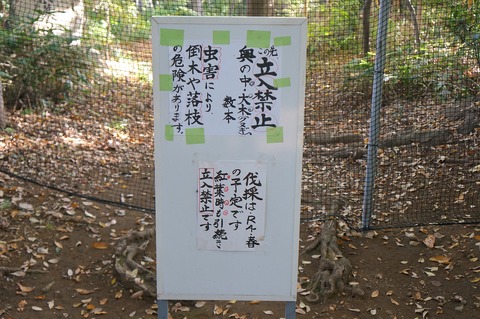 この先
立入禁止
奥の中・大木(クヌギ)
数本
虫害により、
倒木や落枝
の危険があります。
伐採はR7.春
の予定です
紅葉時も引続き
立入禁止です